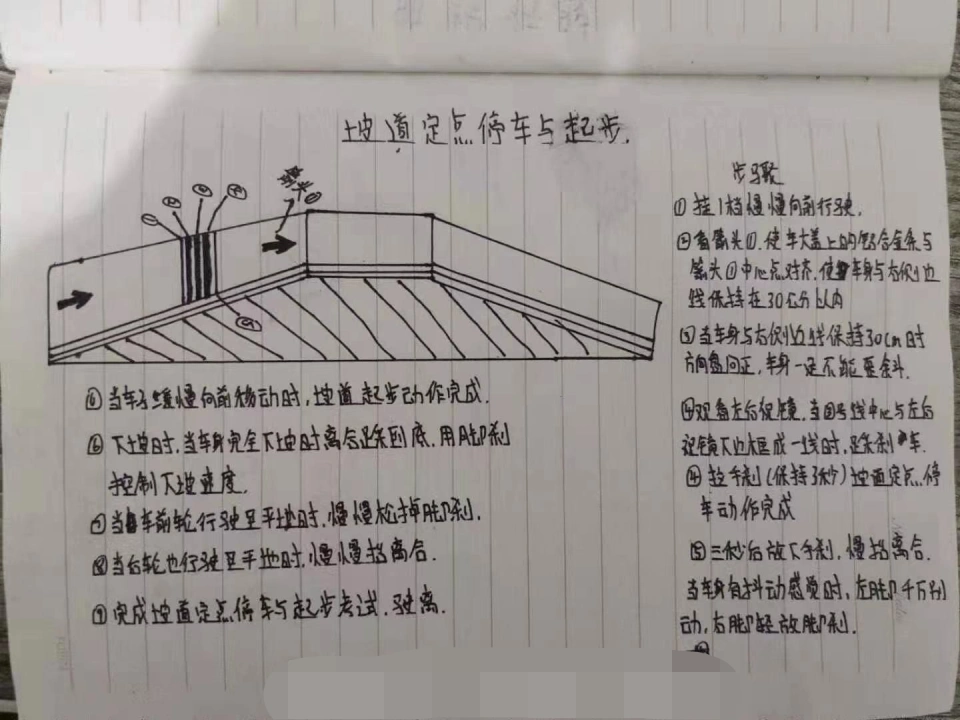 坡道定点停车与起步.
箭头①
步骤
①挂1档慢慢向前行驶.
②看箭头①,使车大盖上的铝合金条与
箭头①中心点对齐,使车身与右侧边
线保持在30公分以内
③当车身与右侧边线保持30cm时
方向盘回正,车身一定不能歪斜.
④观看左后视镜,当④号线中心与左后
视镜下边框成一线时,踩刹车.
④拉手刹(保持3秒)坡道定点停
车动作完成
⑤三秒后放下手刹,慢抬离合.
当车身有抖动感觉时,左脚千万别
动,右脚轻放脚刹.
⑥当车子缓慢向前移动时,坡道起步动作完成.
⑥下坡时,当车身完全下坡时离合踩到底,用脚刹
控制下坡速度.
⑦当车前轮行驶至平地时,慢慢松掉脚刹.
⑧当后轮也行驶至平地时,慢慢抬离合.
⑨完成坡道定点停车与起步考试,驶离.